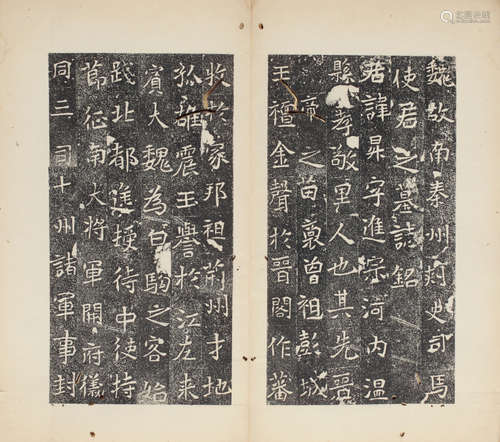 魏故南秦州刺史司馬
使君之墓誌銘
君諱昇字進宗河內溫
縣孝敬里人也其先晉
帝之苗裔曾祖彭城
王擅金聲於晉閣作蕃
牧於家邦祖荊州才地
孤雄震玉譽於江左來
賓大魏為白駒之客始
踐北都遂授侍中使持
節征南大將軍開府儀
同三司十州諸軍事封